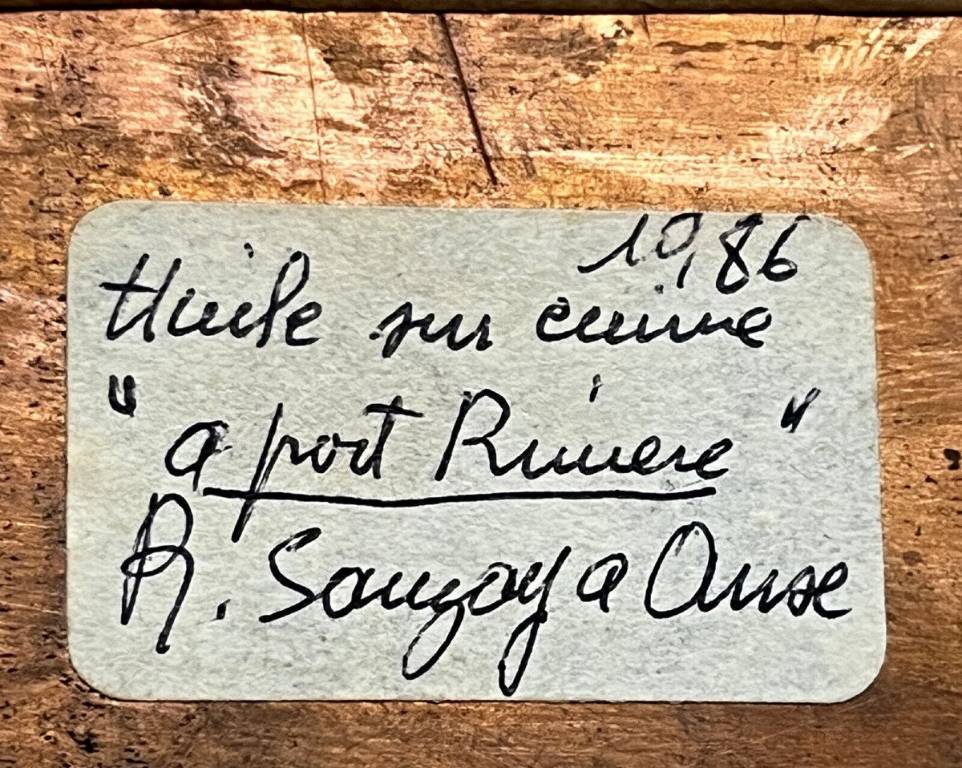 1986
Huile sur cuivre
" a port Riviere "
R. Sauzay a Anse